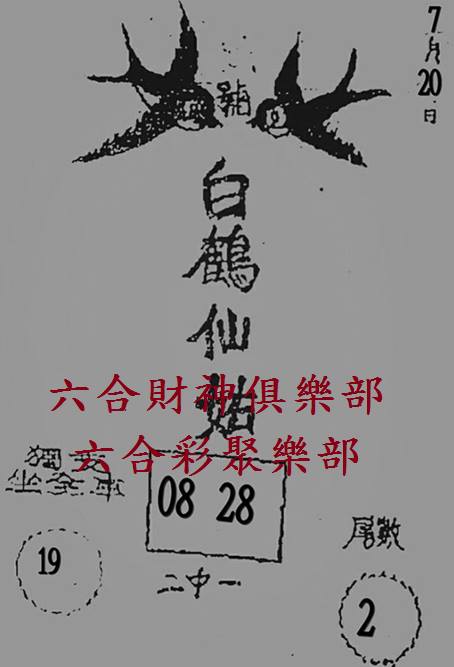 7月20日
號
白鶴仙姑
六合財神俱樂部
六合彩聚樂部
獨
08 28
19
二中一
尾數
2